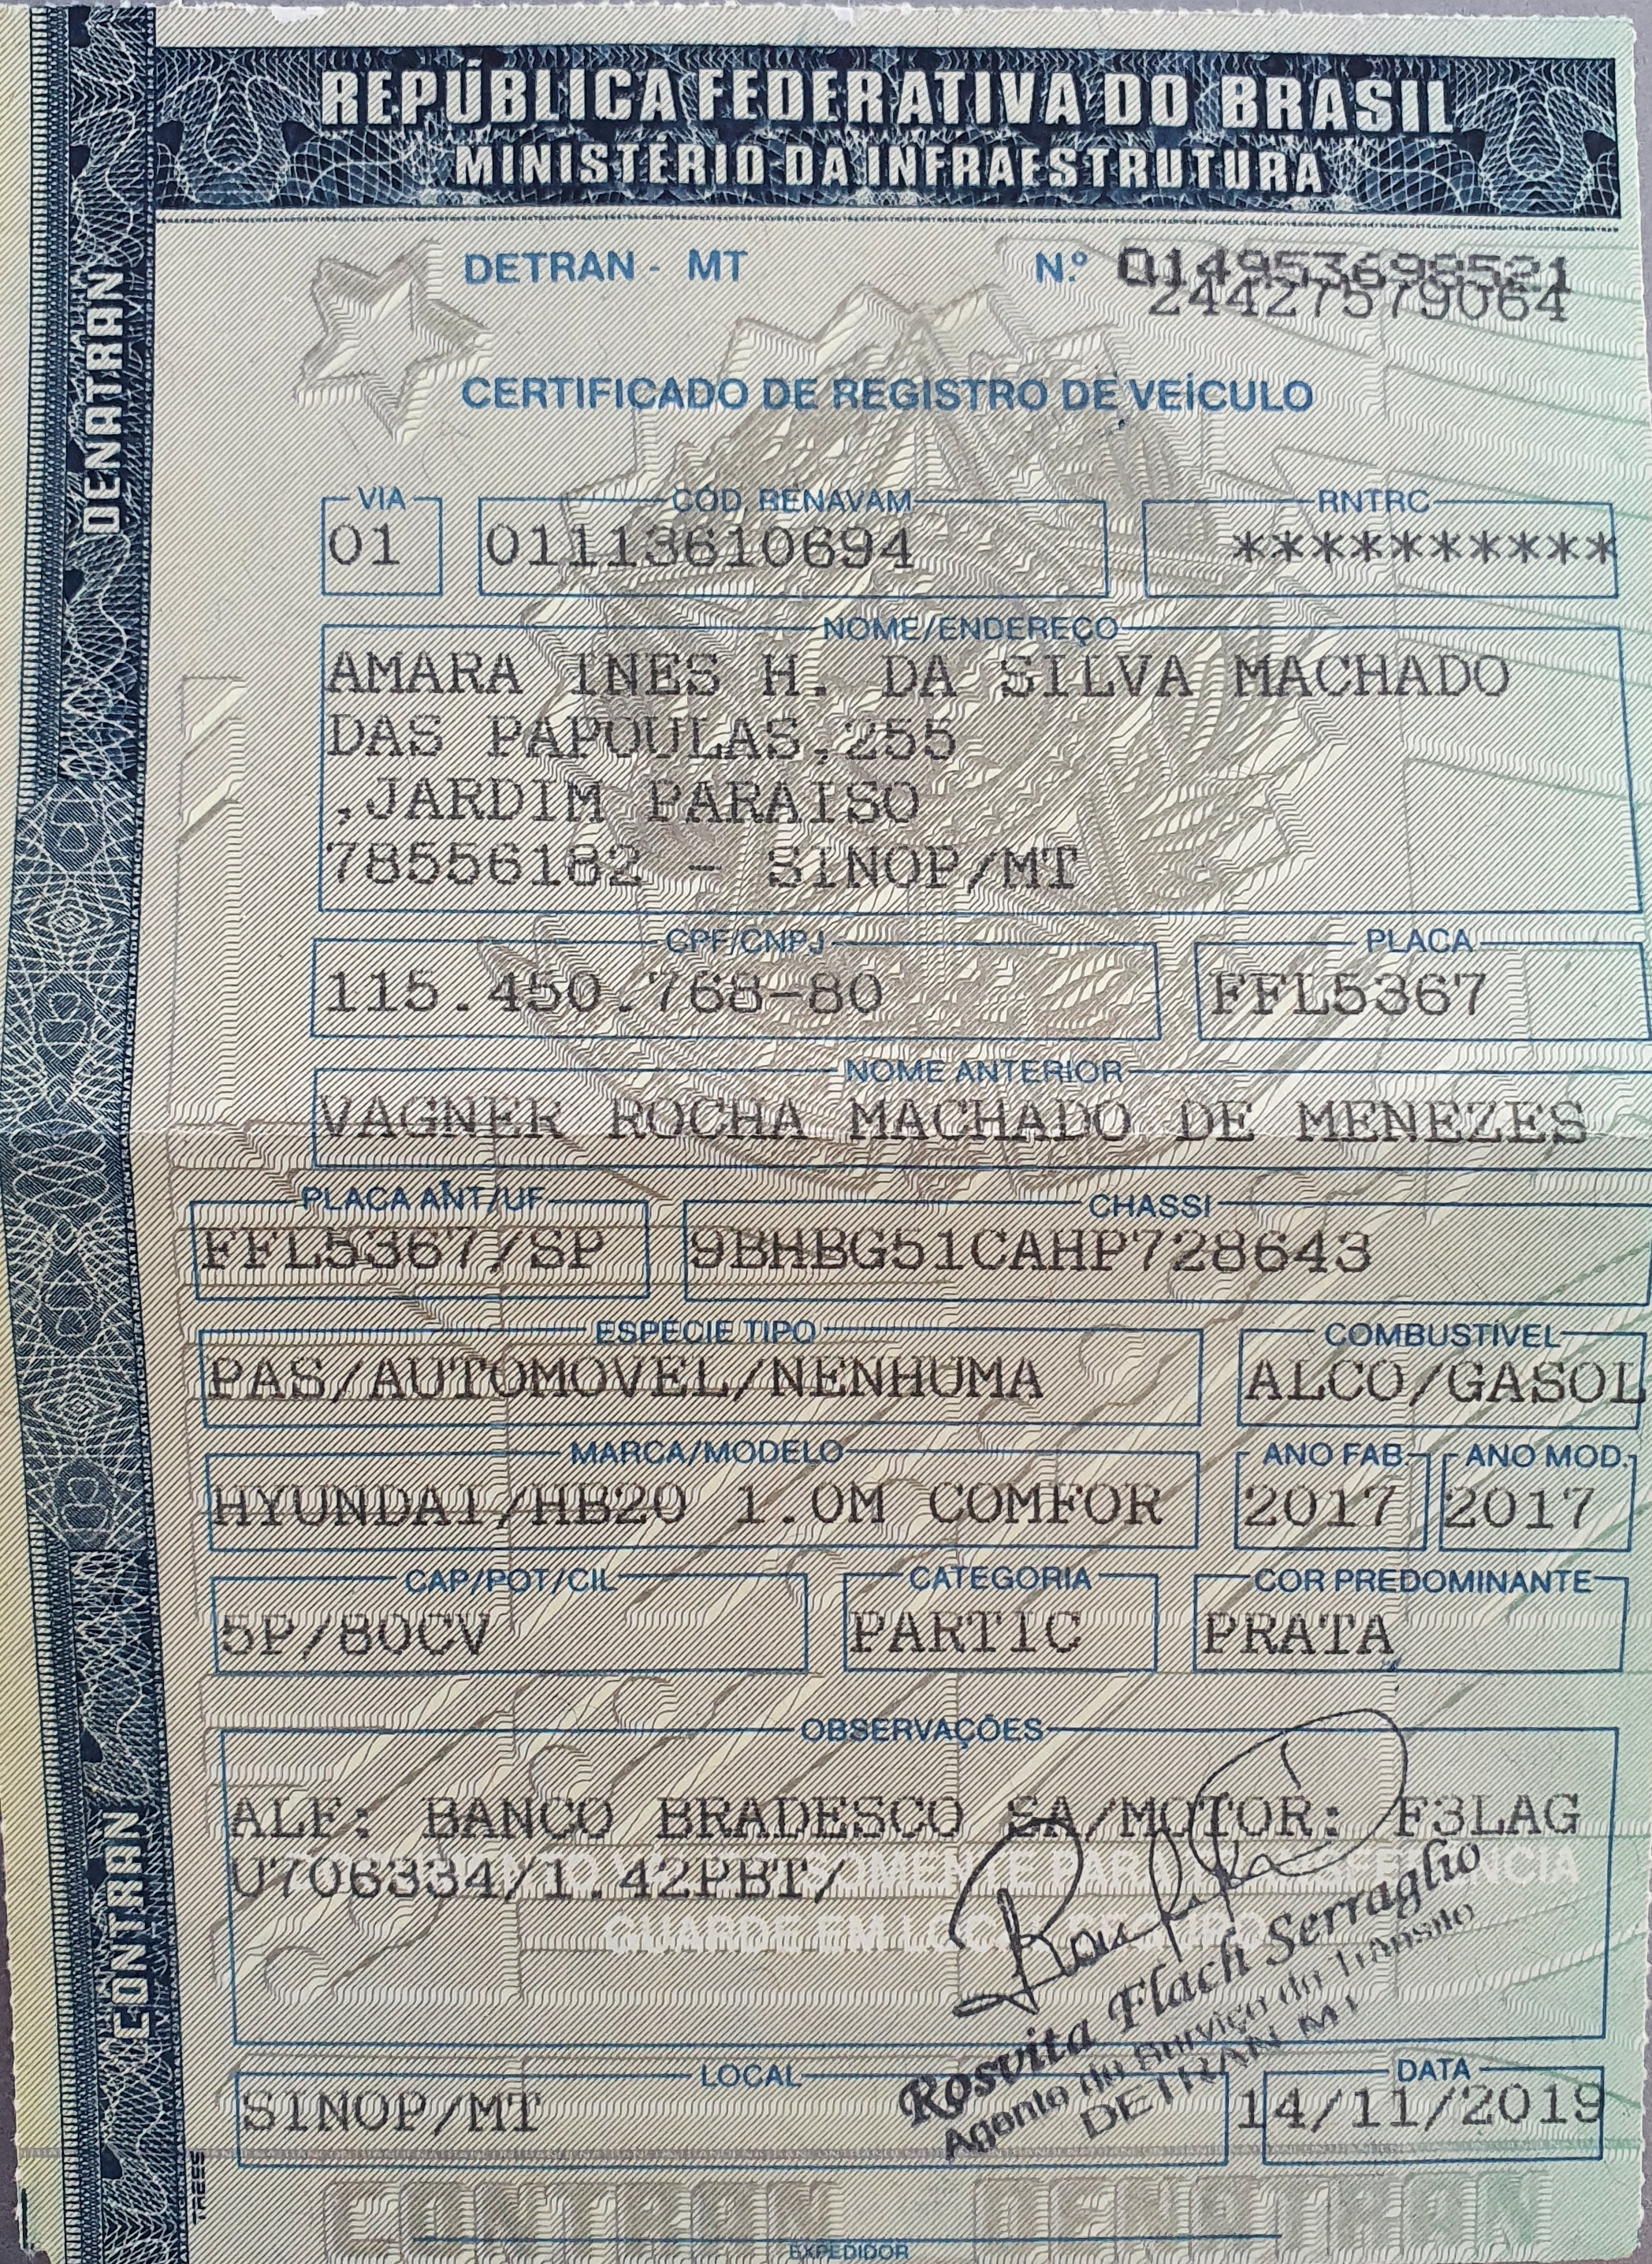 REPÚBLICA FEDERATIVA DO BRASIL
MINISTÉRIO DA INFRAESTRUTURA
DENATRAN
DETRAN - MT N.º 014953698521
24427579064
CERTIFICADO DE REGISTRO DE VEÍCULO
VIA CÓD. RENAVAM RNTRC
01 01113610694 **********
NOME/ENDEREÇO
AMARA INES H. DA SILVA MACHADO
DAS PAPOULAS,255
,JARDIM PARAISO
78556182 - SINOP/MT
CPF/CNPJ PLACA
115.450.768-80 FFL5367
NOME ANTERIOR
VAGNER ROCHA MACHADO DE MENEZES
PLACA ANT/UF CHASSI
FFL5367/SP 9BHBG51CAHP728643
ESPÉCIE TIPO COMBUSTÍVEL
PAS/AUTOMOVEL/NENHUMA ALCO/GASOL
MARCA/MODELO ANO FAB. ANO MOD.
HYUNDAI/HB20 1.0M COMFOR 2017 2017
CAP/POT/CIL CATEGORIA COR PREDOMINANTE
5P/80CV PARTIC PRATA
OBSERVAÇÕES
ALF: BANCO BRADESCO SA/MOTOR: F3LAG
U706334/1.42PBT/
SOMENTE PARA TRANSFERÊNCIA
GUARDE EM LOCAL SEGURO
CONTRAN
Rosvita Flach Serraglio
Agente do Serviço do Trânsito
DETRAN MT
LOCAL DATA
SINOP/MT 14/11/2019
CONTRAN DENATRAN
EXPEDIDOR